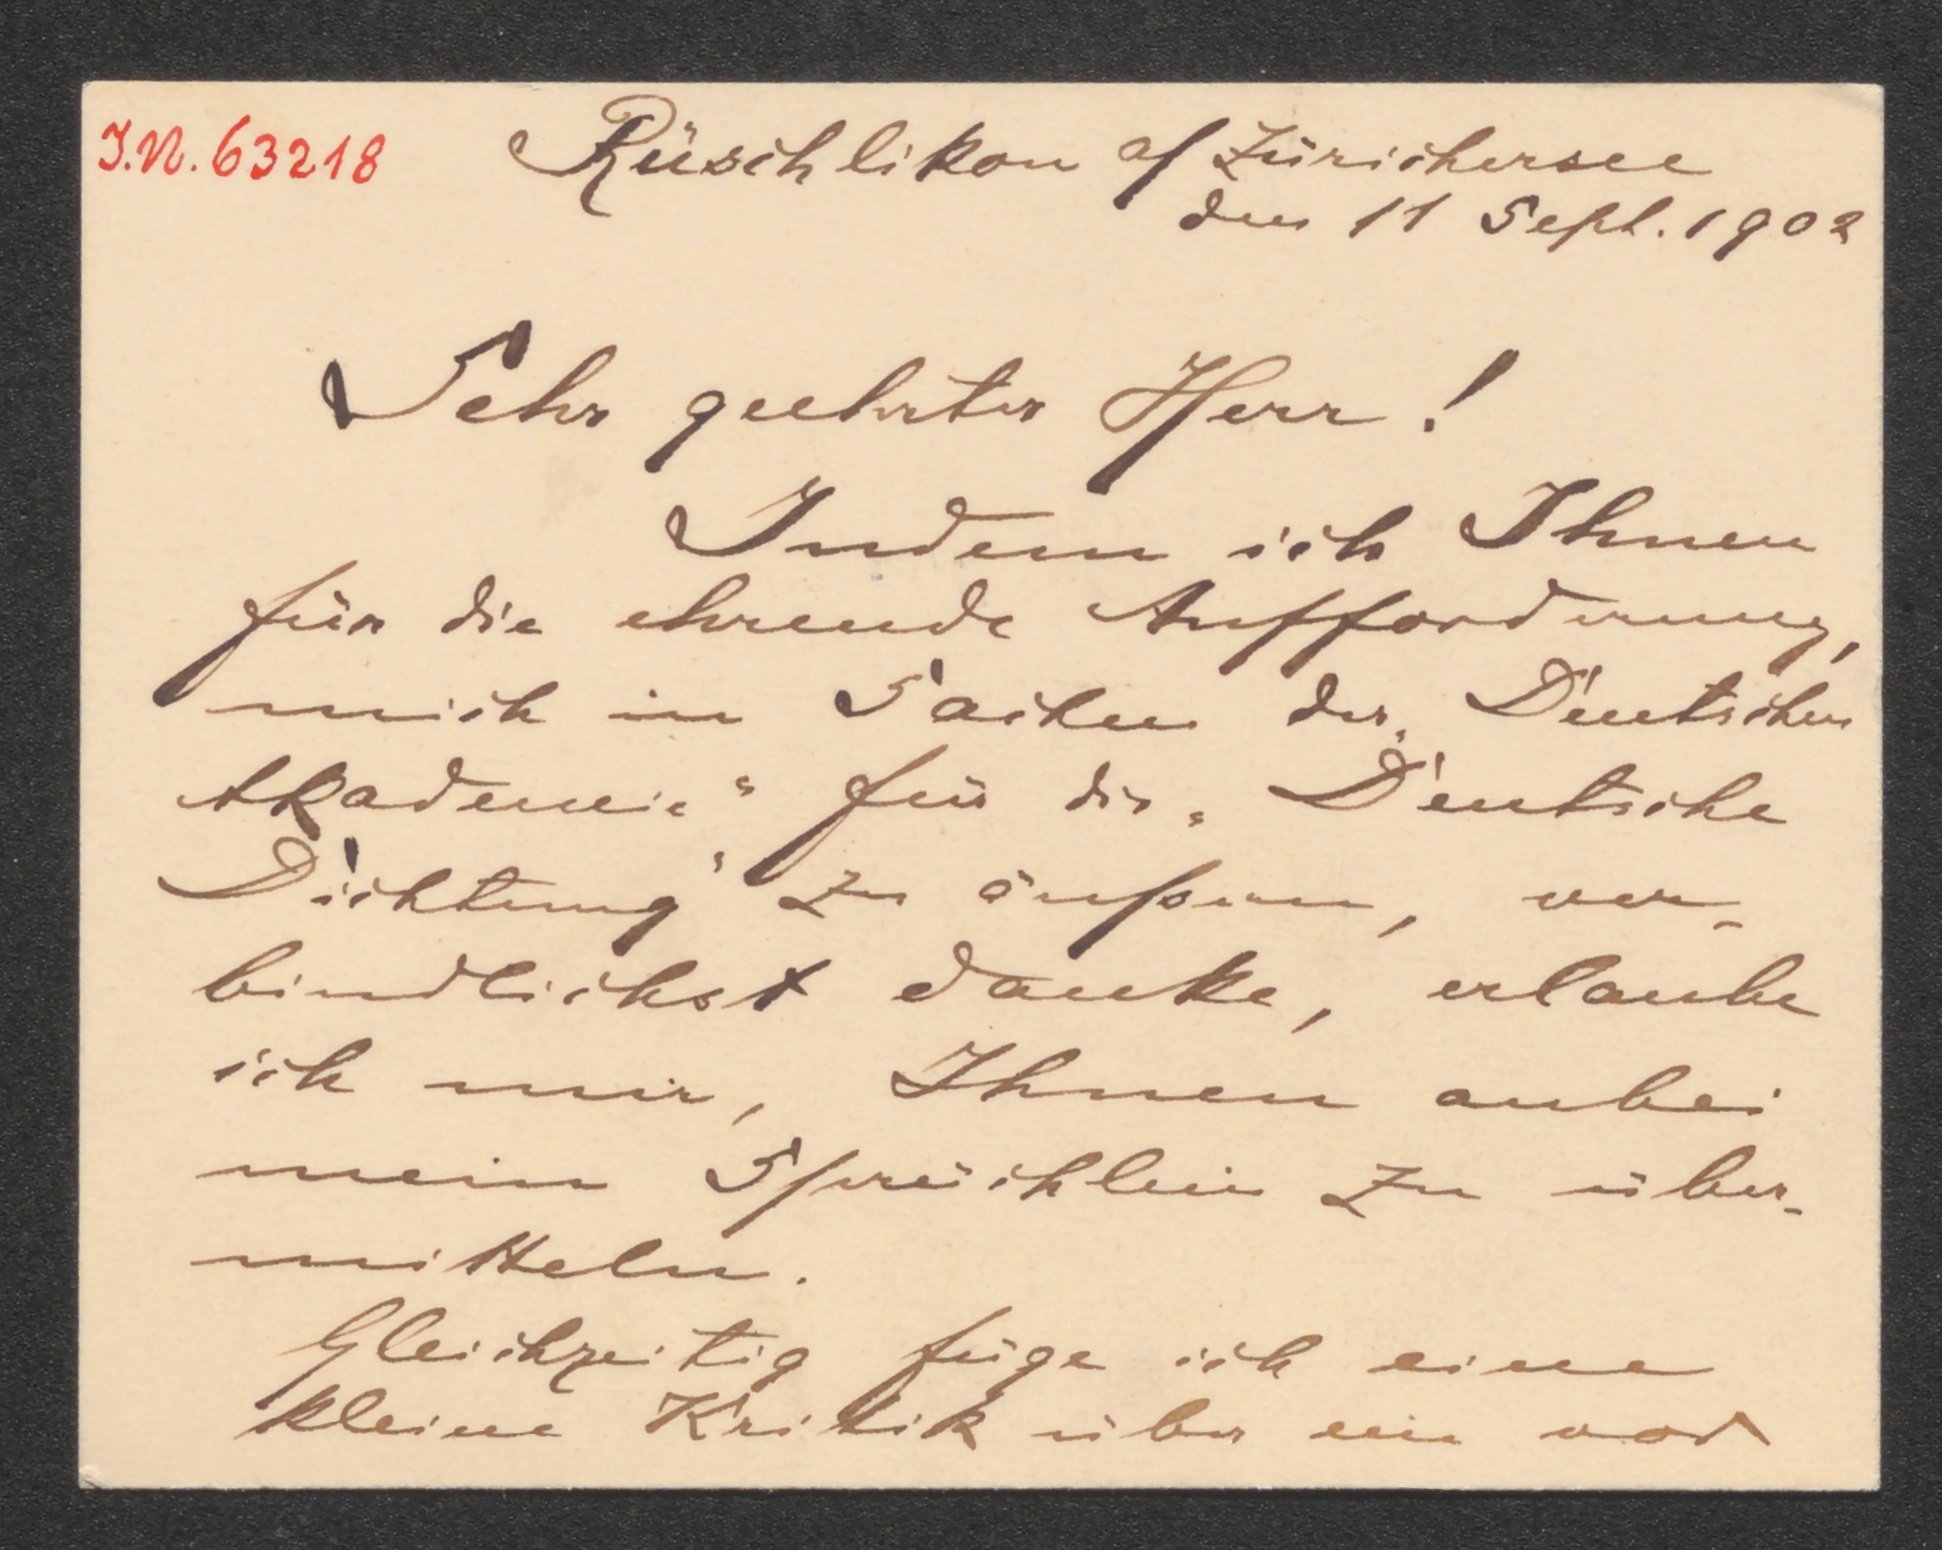 J.N. 63218
Rüschlikon a/ Zürichersee
den 11 Sept. 1902
Sehr geehrter Herr!
Indem ich Ihnen
für die ehrende Aufforderung,
mich in Sachen der „Deutschen
Akademie" für die „Deutsche
Dichtung" zu äußern, ver-
bindlichst danke, erlaube
ich mir, Ihnen anbei
mein Sprüchlein zu über-
mitteln.
Gleichzeitig füge ich eine
kleine Kritik über ein vor